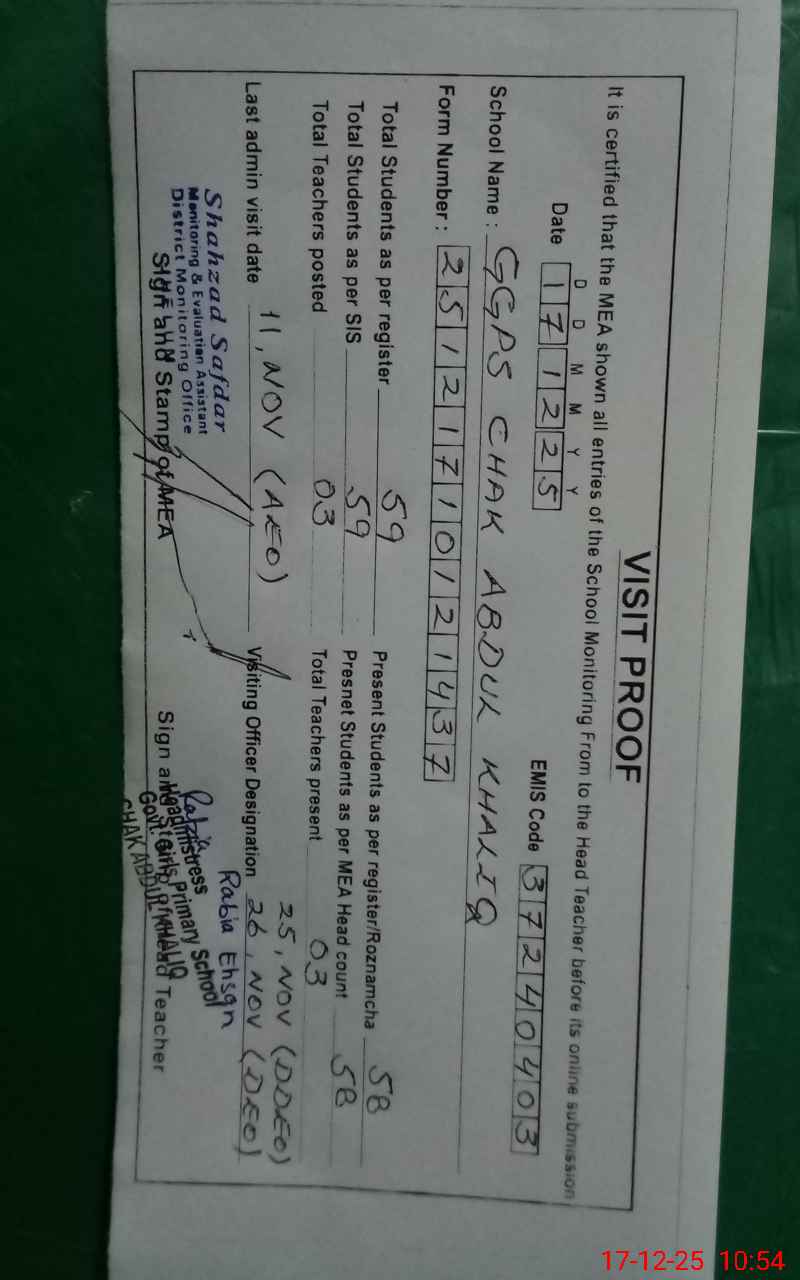 VISIT PROOF
It is certified that the MEA shown all entries of the School Monitoring From to the Head Teacher before its online submission
D D M M Y Y
Date 171225 EMIS Code 37240403
School Name : GGPS CHAK ABDUL KHALIQ
Form Number : 25121710121437
Total Students as per register 59 Present Students as per register/Roznamcha 58
Total Students as per SIS 59 Presnet Students as per MEA Head count 58
Total Teachers posted 03 Total Teachers present 03
25, NOV (DDEO)
Last admin visit date 11, NOV (AEO) Visiting Officer Designation 26, NOV (DEO)
Shahzad Safdar
Monitoring & Evaluation Assistant
District Monitoring Office
Sign and Stamp of MEA
Rabia Ehsan
Rabia
Headmistress
Govt. Girls Primary School
CHAK ABDUL KHALIQ
Sign and Stamp of Head Teacher
17-12-25 10:54